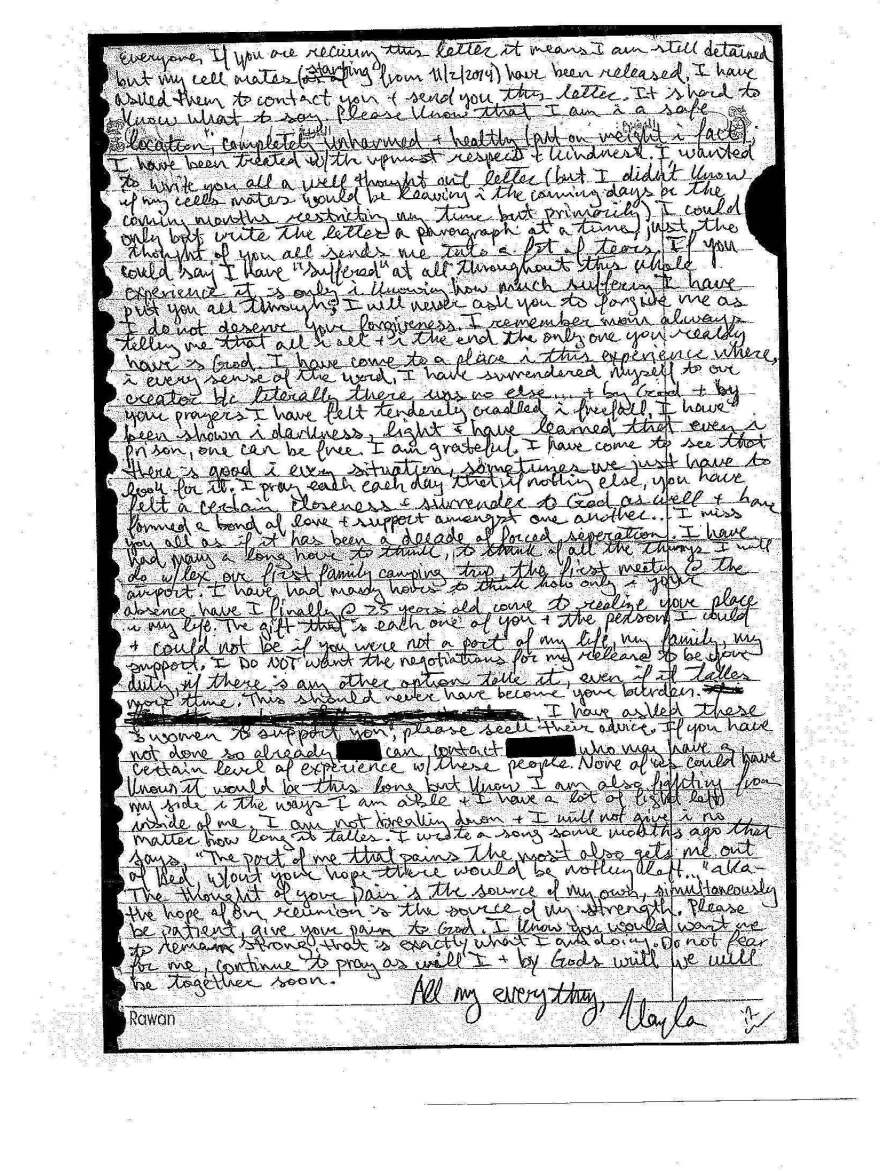 Everyone, If you are receiving this letter it means I am still detained
but my cell mates (starting from 11/2/2014) have been released. I have
asked them to contact you + send you this letter. It is hard to
know what to say. Please know that I am i a safe
location, completely unharmed + healthy (put on weight i fact);
I have been treated w/ the upmost respect + kindness. I wanted
to write you all a well thought out letter (but I didn't know
if my cells mates would be leaving i the coming days or the
coming months restricting my time but primarily) I could
only but write the letter a paragraph at a time, just the
thought of you all sends me into a fit of tears. If you
could say I have "suffered" at all throughout this whole
experience it is only i knowing how much suffering I have
put you all through; I will never ask you to forgive me as
I do not deserve your forgiveness. I remember mom always
telling me that all i all + i the end the only one you really
have is God. I have come to a place i this experience where,
i every sense of the word, I have surrendered myself to our
creator b/c literally there was no else... + by God + by
your prayers I have felt tenderly cradled i freefall. I have
been shown i darkness, light + have learned that even i
prison, one can be free. I am grateful. I have come to see that
there is good i every situation, sometimes we just have to
look for it. I pray each each day that if nothing else, you have
felt a certain closeness + surrender to God as well + have
formed a bond of love + support amongst one another... I miss
you all as if it has been a decade of forced seperation. I have
had many a long hour to think, to think of all the things I will
do w/ Lex, our first family camping trip, the first meeting @ the
airport. I have had many hours to think how only i your
absence have I finally @ 25 years old come to realize your place
i my life. The gift that is each one of you + the person I could
+ could not be if you were not a part of my life, my family, my
support. I DO NOT want the negotiations for my release to be your
duty, if there is any other option take it, even if it takes
more time. This should never have become your burden.
I have asked these
women to support you; please seek their advice. If you have
not done so already can contact who may have a
certain level of experience w/ these people. None of us could have
known it would be this long but know I am also fighting from
my side i the ways I am able + I have a lot of fight left
inside of me. I am not breaking down + I will not give i no
matter how long it takes. I wrote a song some months ago that
says, "The part of me that pains the most also gets me out
of bed, w/out your hope there would be nothing left..." aka-
The thought of your pain is the source of my own, simultaneously
the hope of our reunion is the source of my strength. Please
be patient, give your pain to God. I know you would want me
to remain strong that is exactly what I am doing. Do not fear
for me, continue to pray as will I + by Gods will we will
be together soon.
All my everything,
Kayla
Rawan